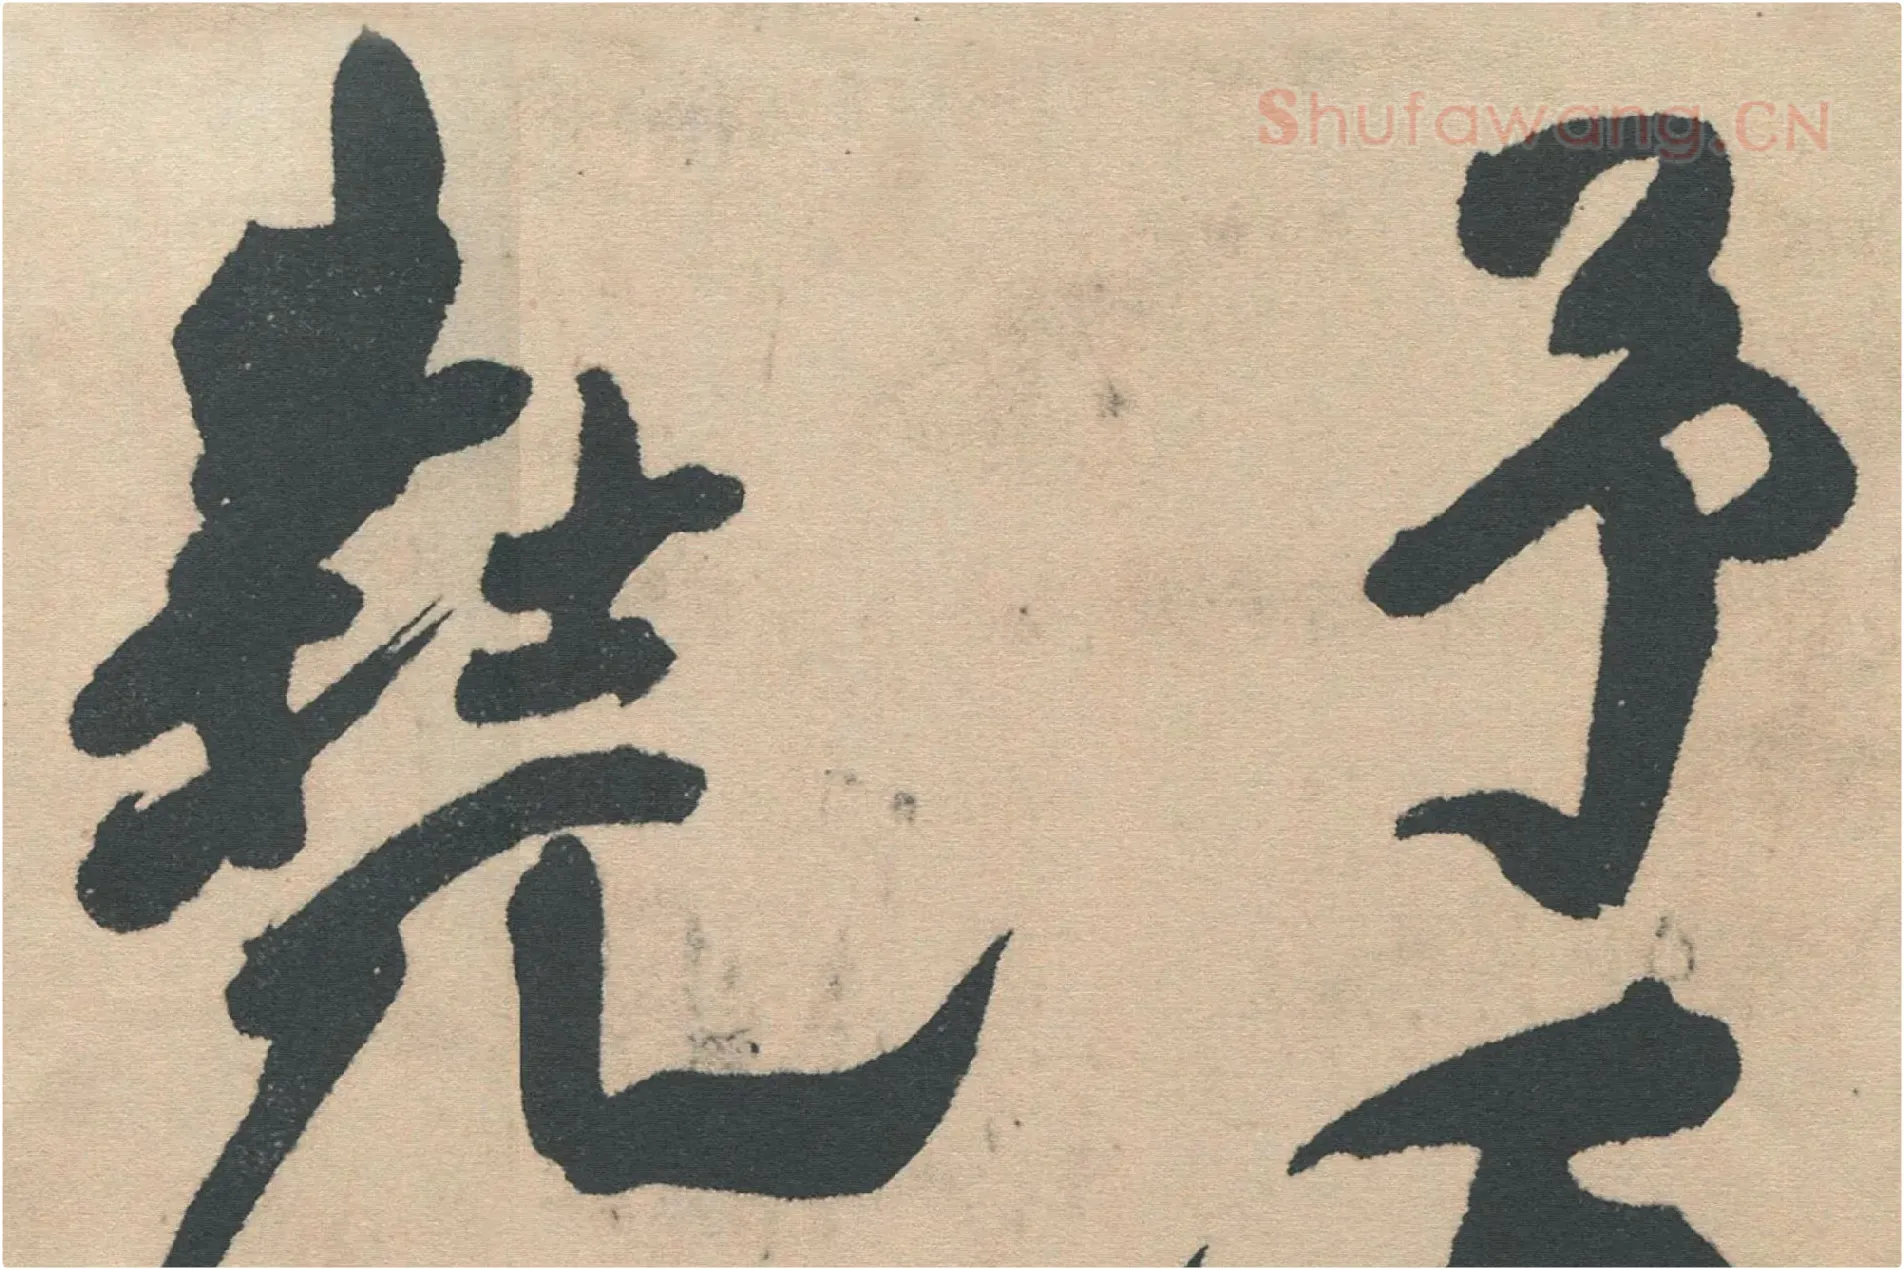 Shufawang.CN
予
堯